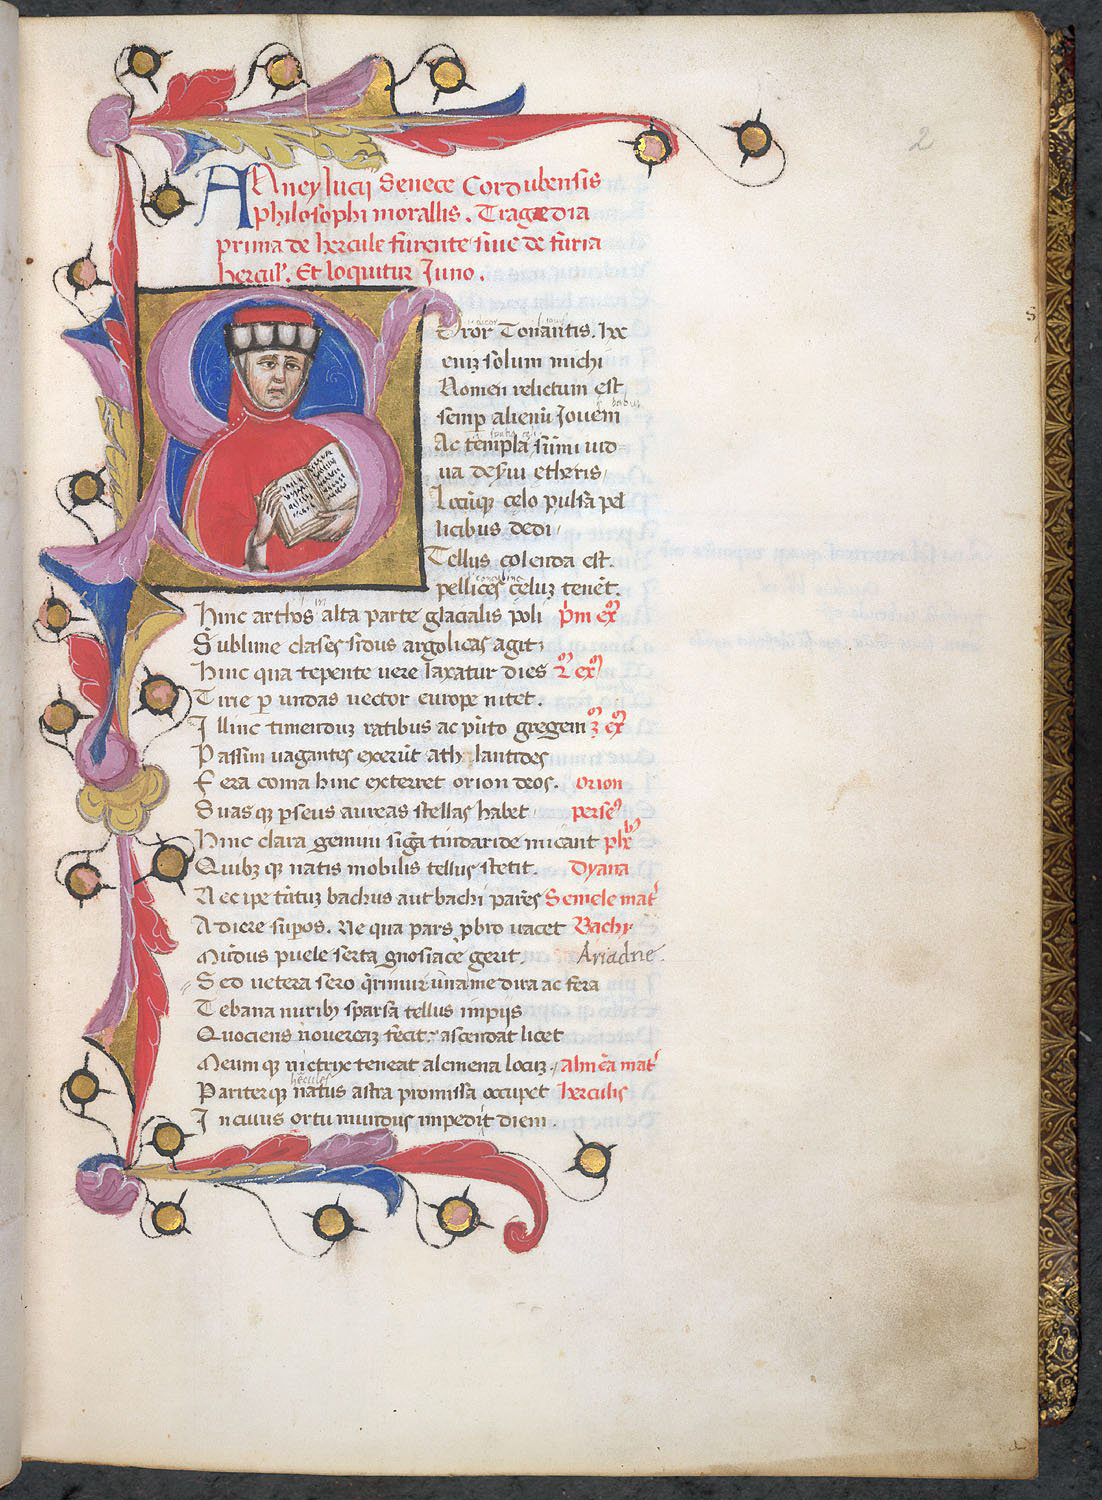 2
ANney lucij Senece Cordubensis
philosophi morallis. Tragedia
prima de hercule furente siue de furia
hercul'. Et loquitur Juno.
Soror Tonantis. hec
enim solum michi
Nomen relictum est
semp alienũ Jouem
Ac templa sũmi uid
ua deserui etheris
Locũqꝫ celo pulsa pel
licibus dedi
Tellus colenda est.
pellices celuꝫ tenẽt.
Hinc arthos alta parte glacialis poli pm̃ ex
Sublime clases sidus argolicas agit
Hinc qua tepente uere laxatur dies 2 ex
Tirie p undas uector europe nitet.
Illinc timenduꝫ ratibus ac põto gregem 3 ex
Passim uagantes exerũt athlantides
Fera coma hinc exterret orion deos. orion
Suasqꝫ pseus aureas stellas habet perseꝰ
Hinc clara gemini sig̃a tindaride micant
Quibꝫqꝫ natis mobilis tellus stetit. Dyana
Nec ipe tãtuꝫ bachus aut bachi parẽs Semele mat'
Adiere supos. Ne qua pars pbro uacet Bachi
Mũdus puele serta gnosiace gerit. Ariadne.
Sed uetera sero q̃rimur una me dira ac fera
Tebana nuribꝫ sparsa tellus impijs
Quociens nouercaꝫ fecit. ascendat licet
Meumqꝫ uictrix teneat alcmena locuꝫ. almẽa mat'
Pariterqꝫ natus astra promissa occupet herculis
In cuius ortu mundus impedit diem.